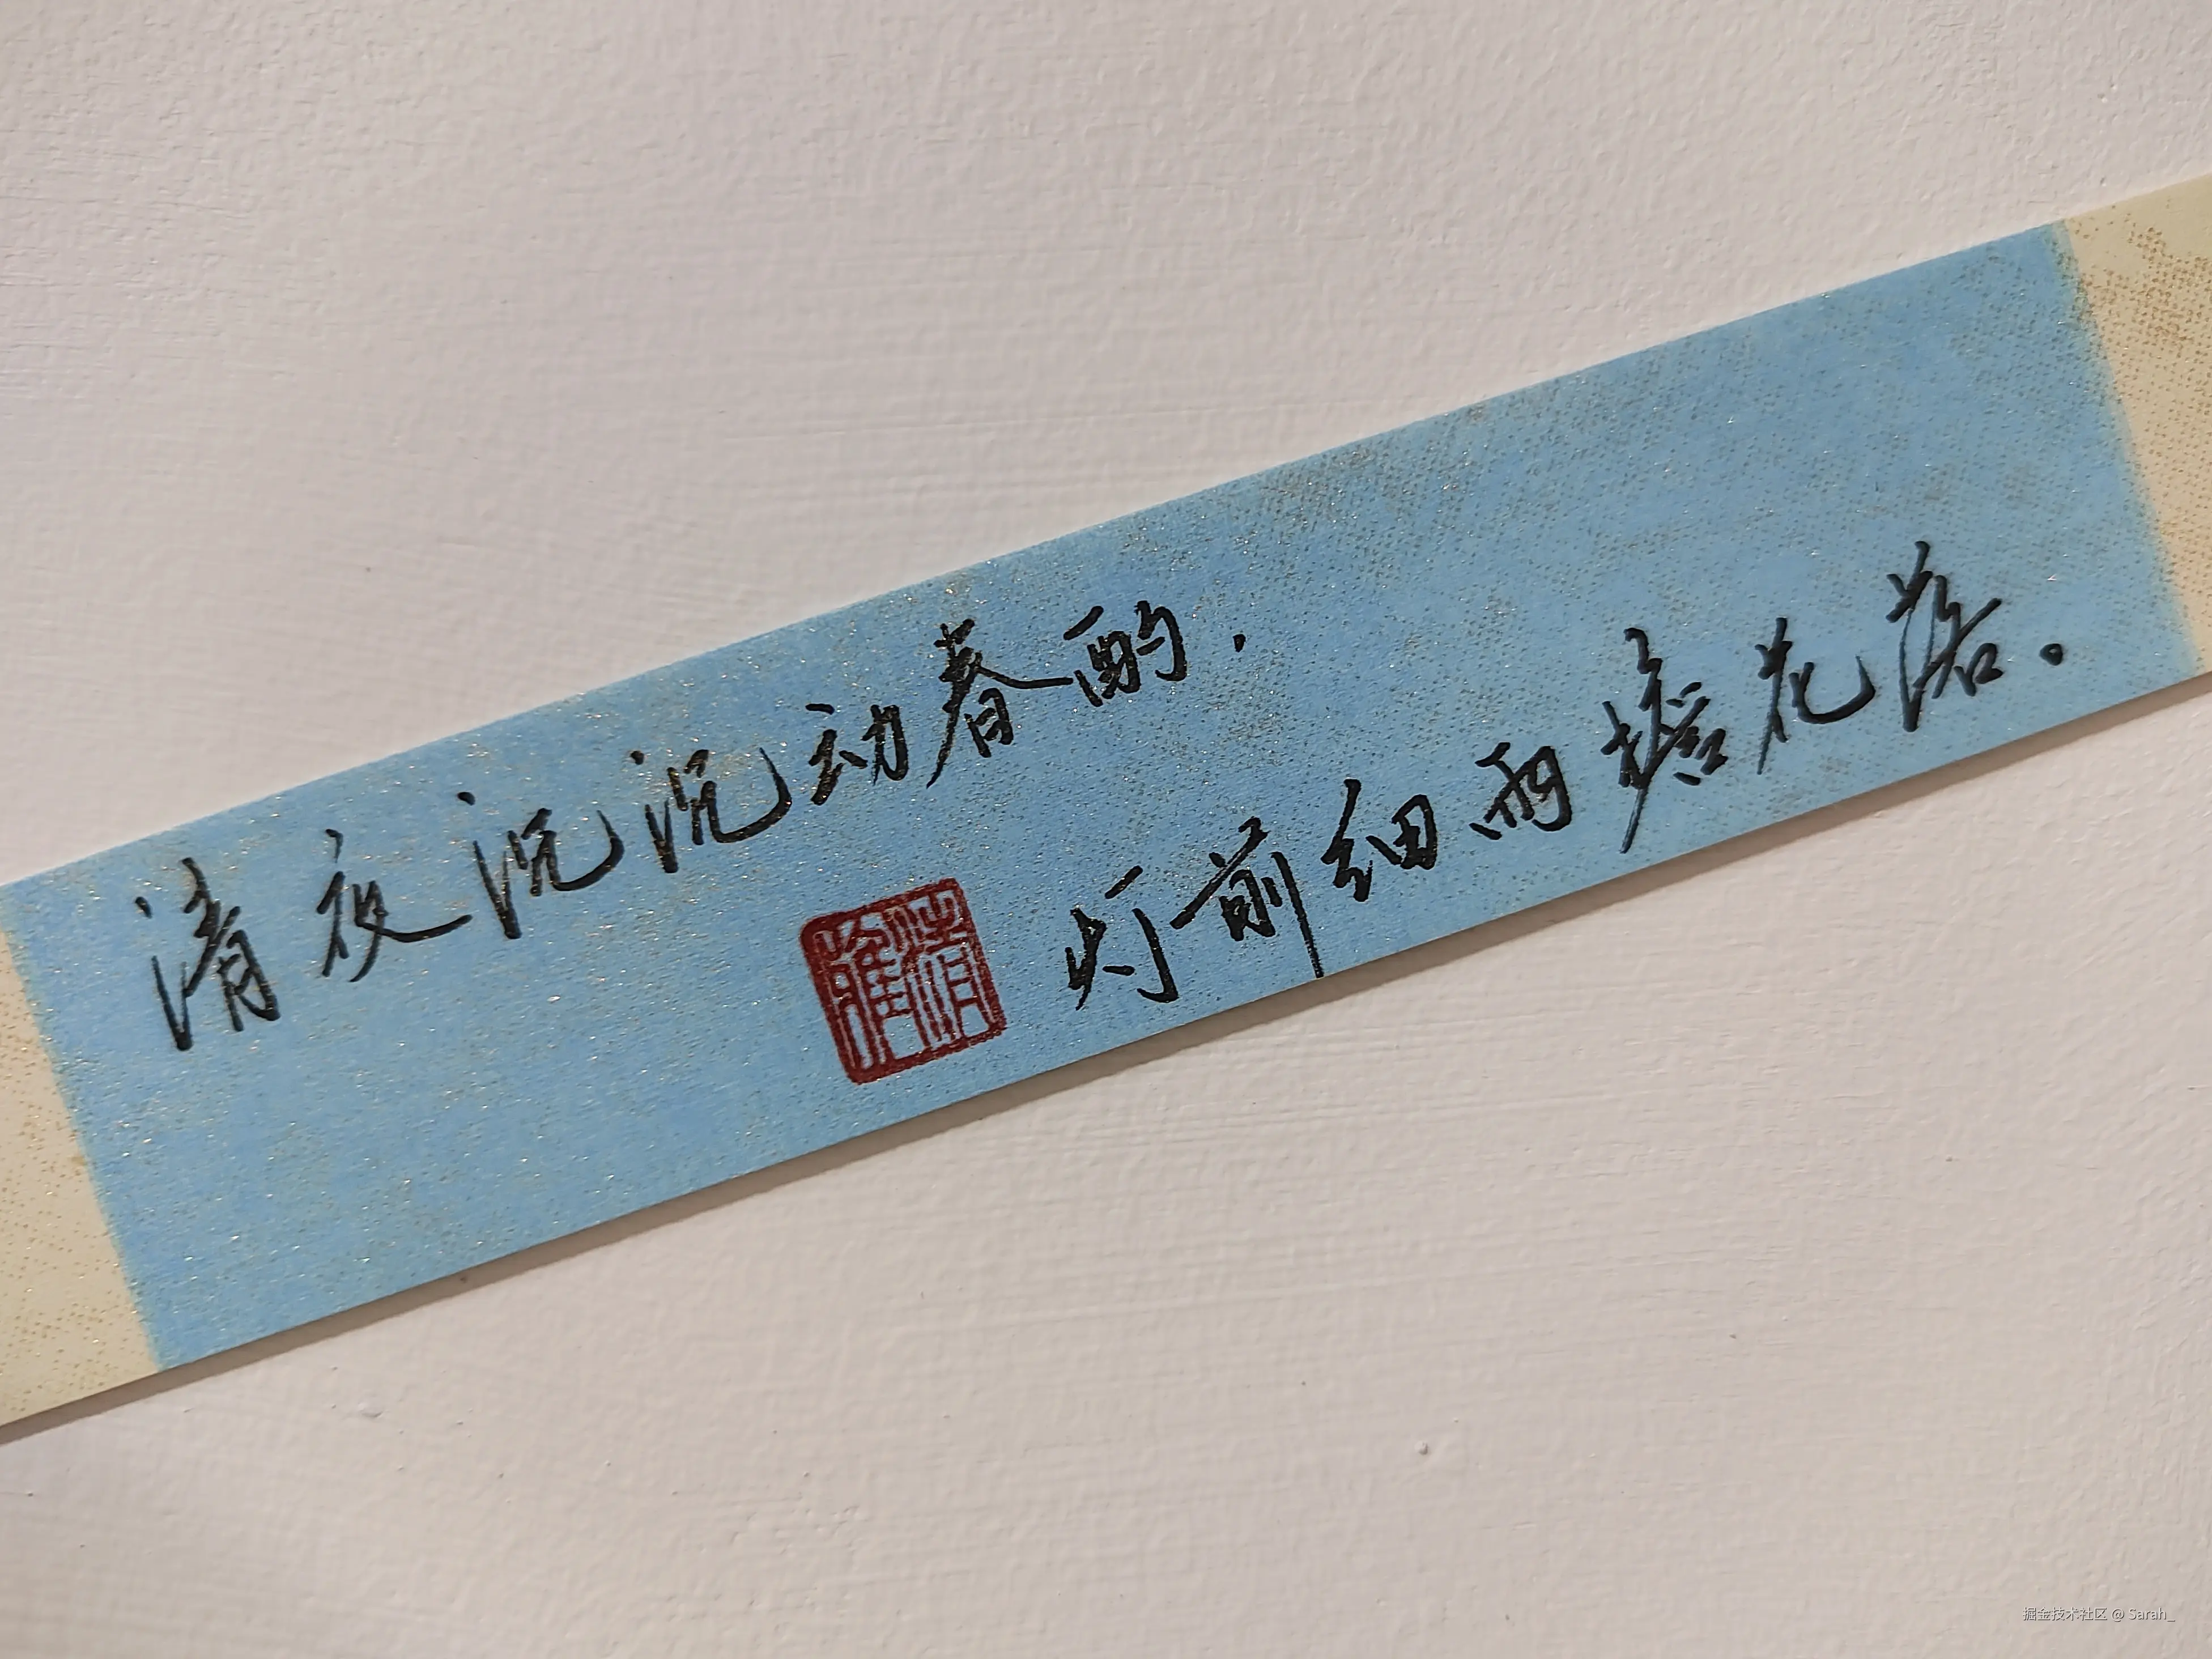 清夜沉沉动春酌.
灯前细雨檐花落。
掘金技术社区 @ Sarah_